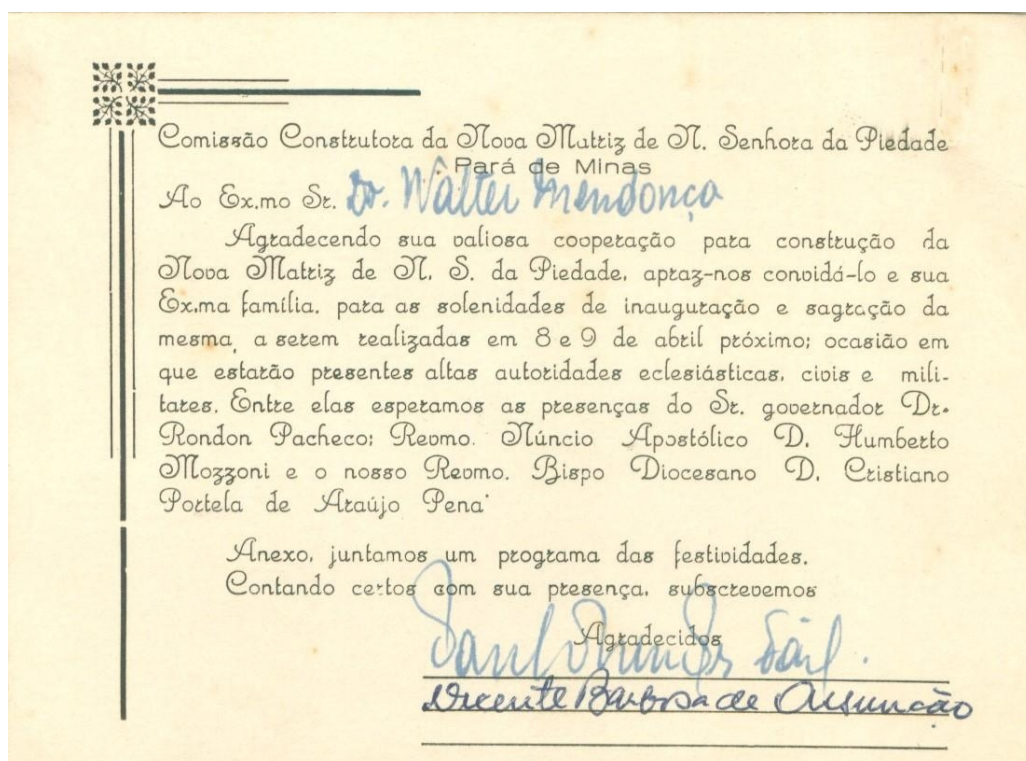 Comissão Construtora da Nova Matriz de N. Senhora da Piedade
Pará de Minas
Ao Ex.mo Sr. Dr. Walter Mendonça
Agradecendo sua valiosa cooperação para construção da
Nova Matriz de N. S. da Piedade, apraz-nos convidá-lo e sua
Ex.ma família, para as solenidades de inauguração e sagração da
mesma, a serem realizadas em 8 e 9 de abril próximo; ocasião em
que estarão presentes altas autoridades eclesiásticas, civis e mili-
tares. Entre elas esperamos as presenças do Sr. governador Dr.
Rondon Pacheco; Revmo. Núncio Apostólico D. Humberto
Mozzoni e o nosso Revmo. Bispo Diocesano D. Cristiano
Portela de Araújo Pena
Anexo, juntamos um programa das festividades.
Contando certos com sua presença, subscrevemos
Agradecidos
Vicente Barbosa de Assunção